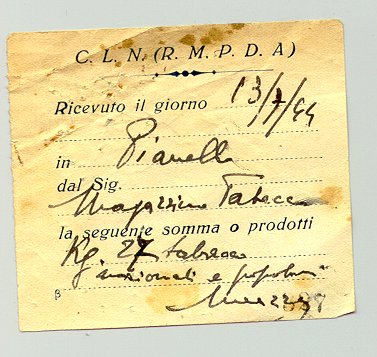 C. L. N. (R. M. P. D. A)
Ricevuto il giorno 13/7/44
in Pianello
dal Sig.
Magazzino Tabacchi
la seguente somma o prodotti
Kg. 27 tabacco
nazionali e popolari
β